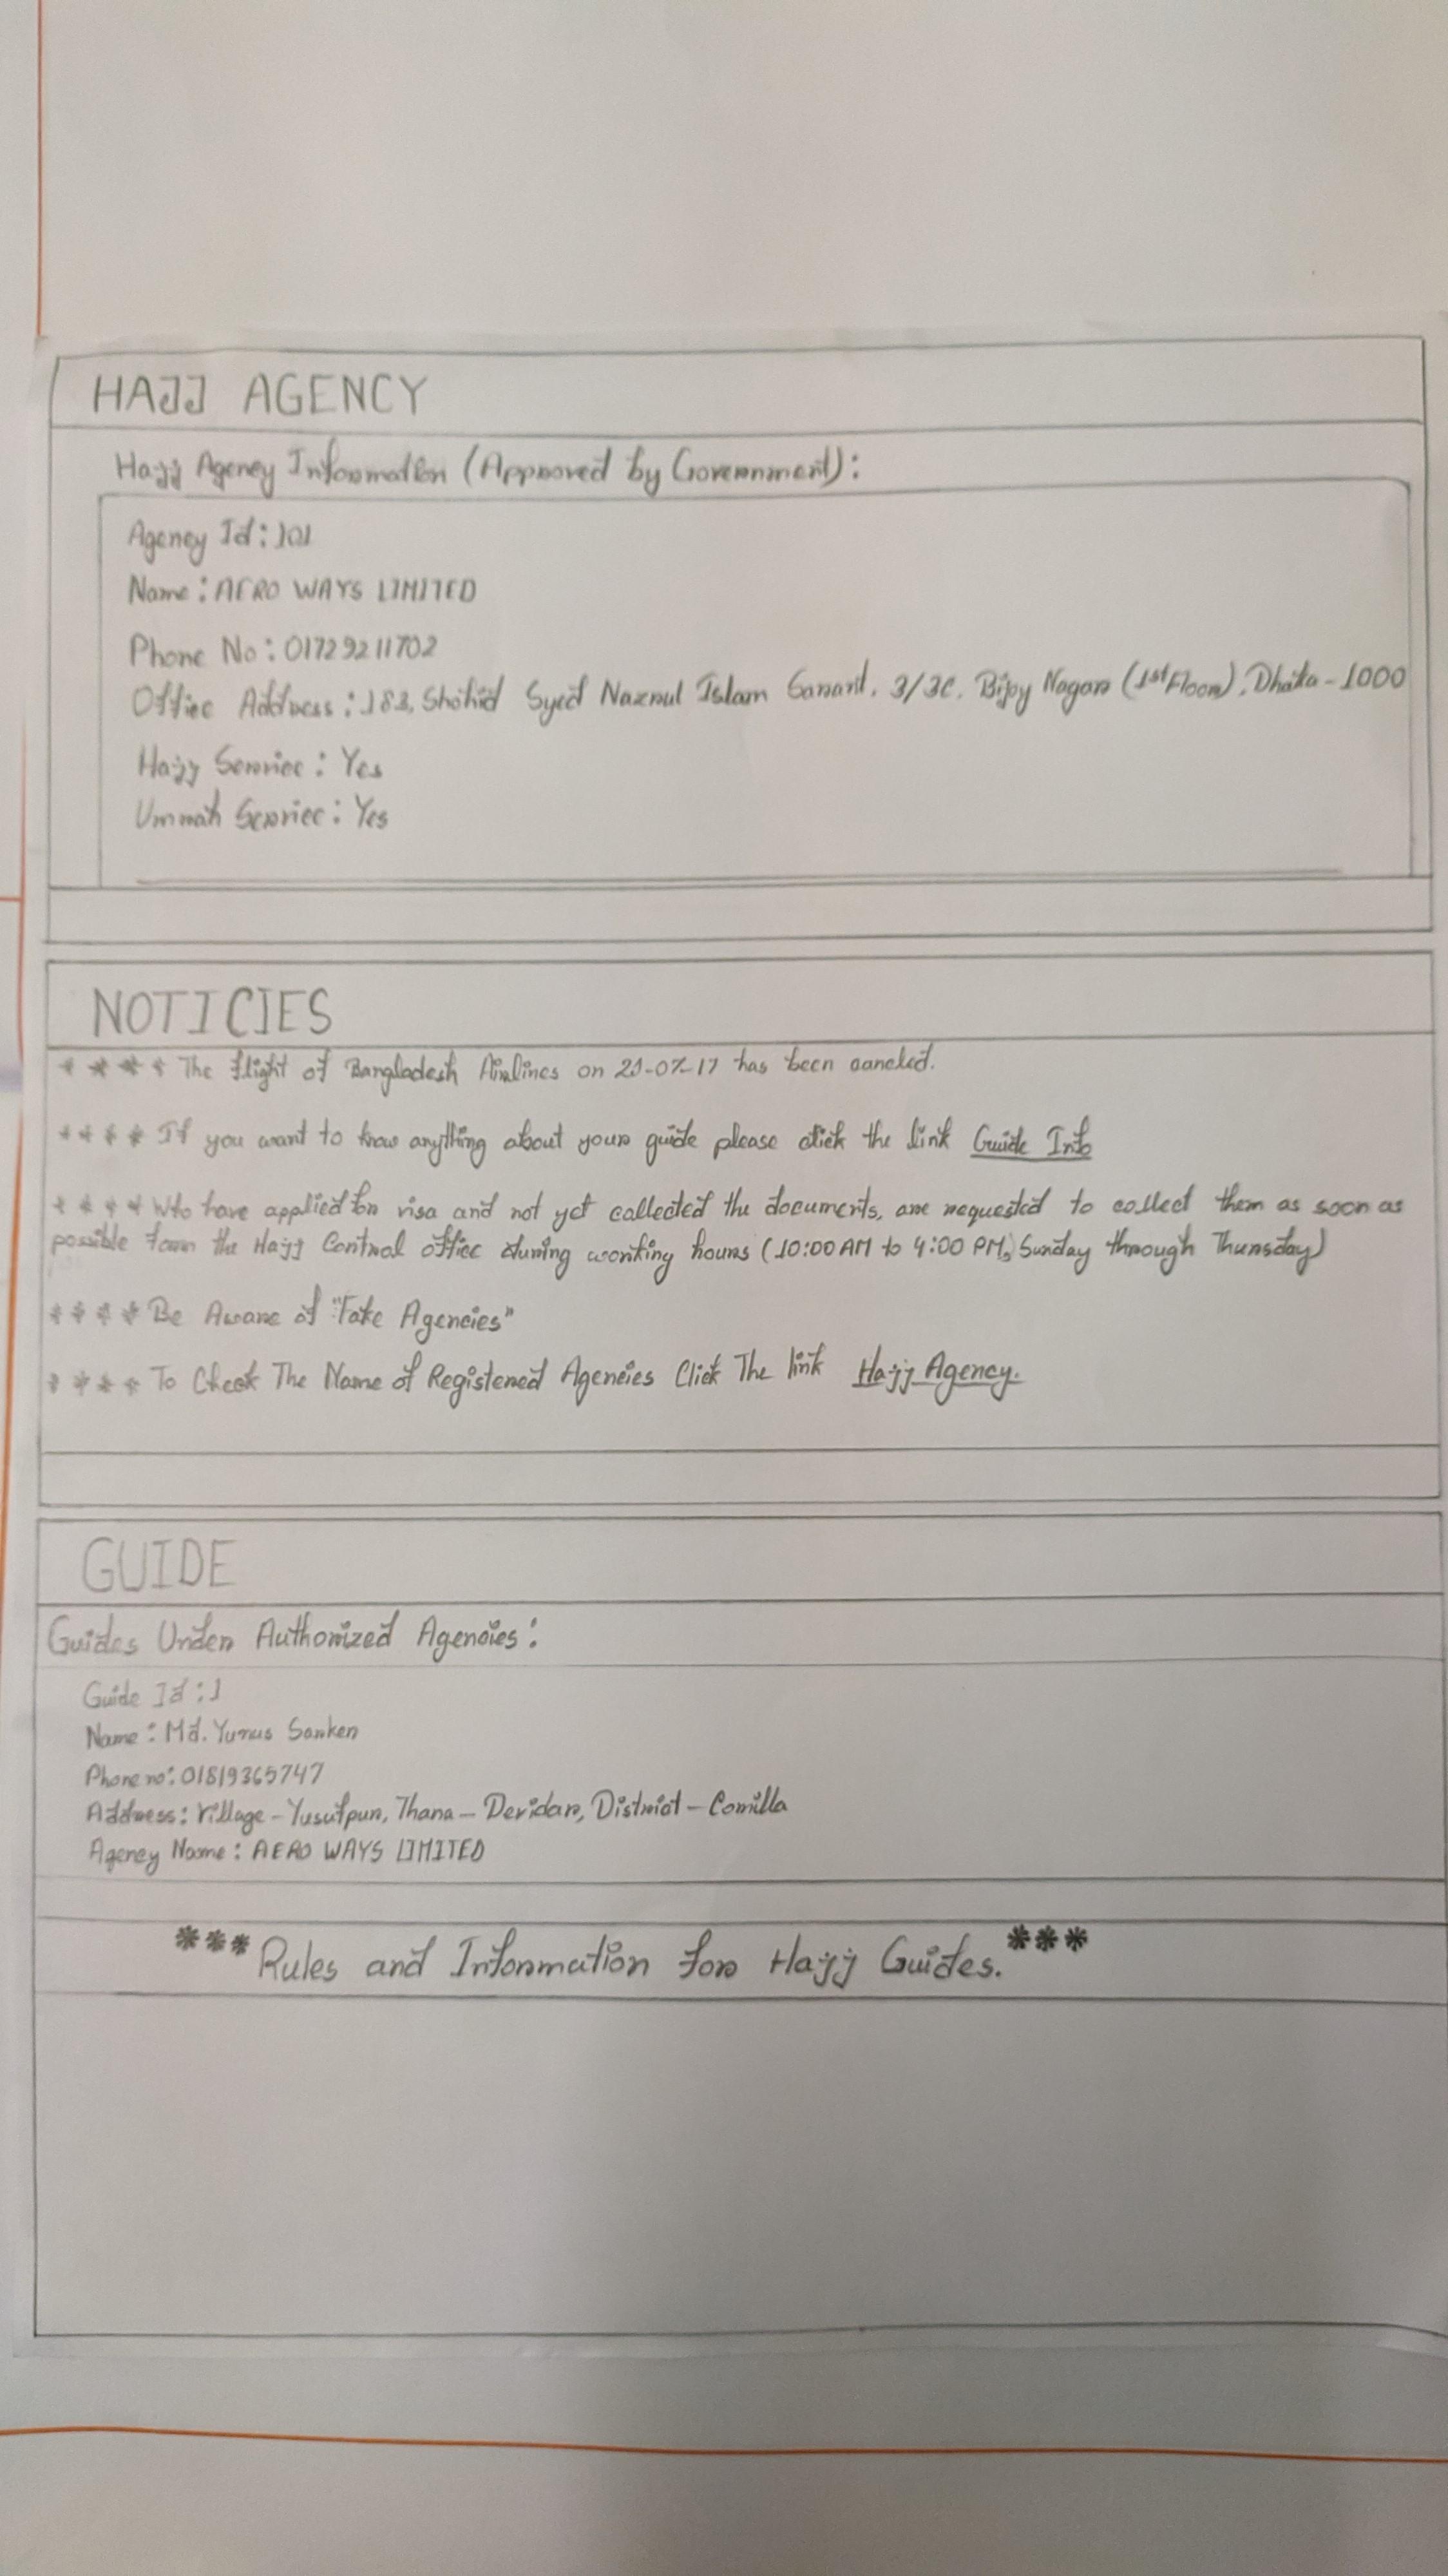 HAJJ AGENCY
Hajj Agency Information (Approved by Government):
Agency Id: 101
Name: AERO WAYS LIMITED
Phone No: 01729211702
Office Address: 183, Shohid Syed Nazrul Islam Sarani. 3/3C. Bijoy Nagar (1st Floor). Dhaka-1000
Hajj Service: Yes
Ummah Service: Yes
NOTICIES
**** The flight of Bangladesh Airlines on -17 has been cancled.
**** If you want to know anything about your guide please click the link Guide Info
**** Who have applied for visa and not yet collected the documents, are requested to collect them as soon as
possible form the Hajj Control office during working hours (10:00 AM to 4:00 PM, Sunday through Thursday)
**** Be Aware of "Fake Agencies"
**** To Check The Name of Registered Agencies Click The link Hajj Agency.
GUIDE
Guides Under Authorized Agencies:
Guide Id: 1
Name: Md. Yunus Sarker
Phone no: 01819365747
Address: Village-Yusufpur, Thana-Devidar, District-Comilla
Agency Name: AERO WAYS LIMITED
*** Rules and Information for Hajj Guides. ***